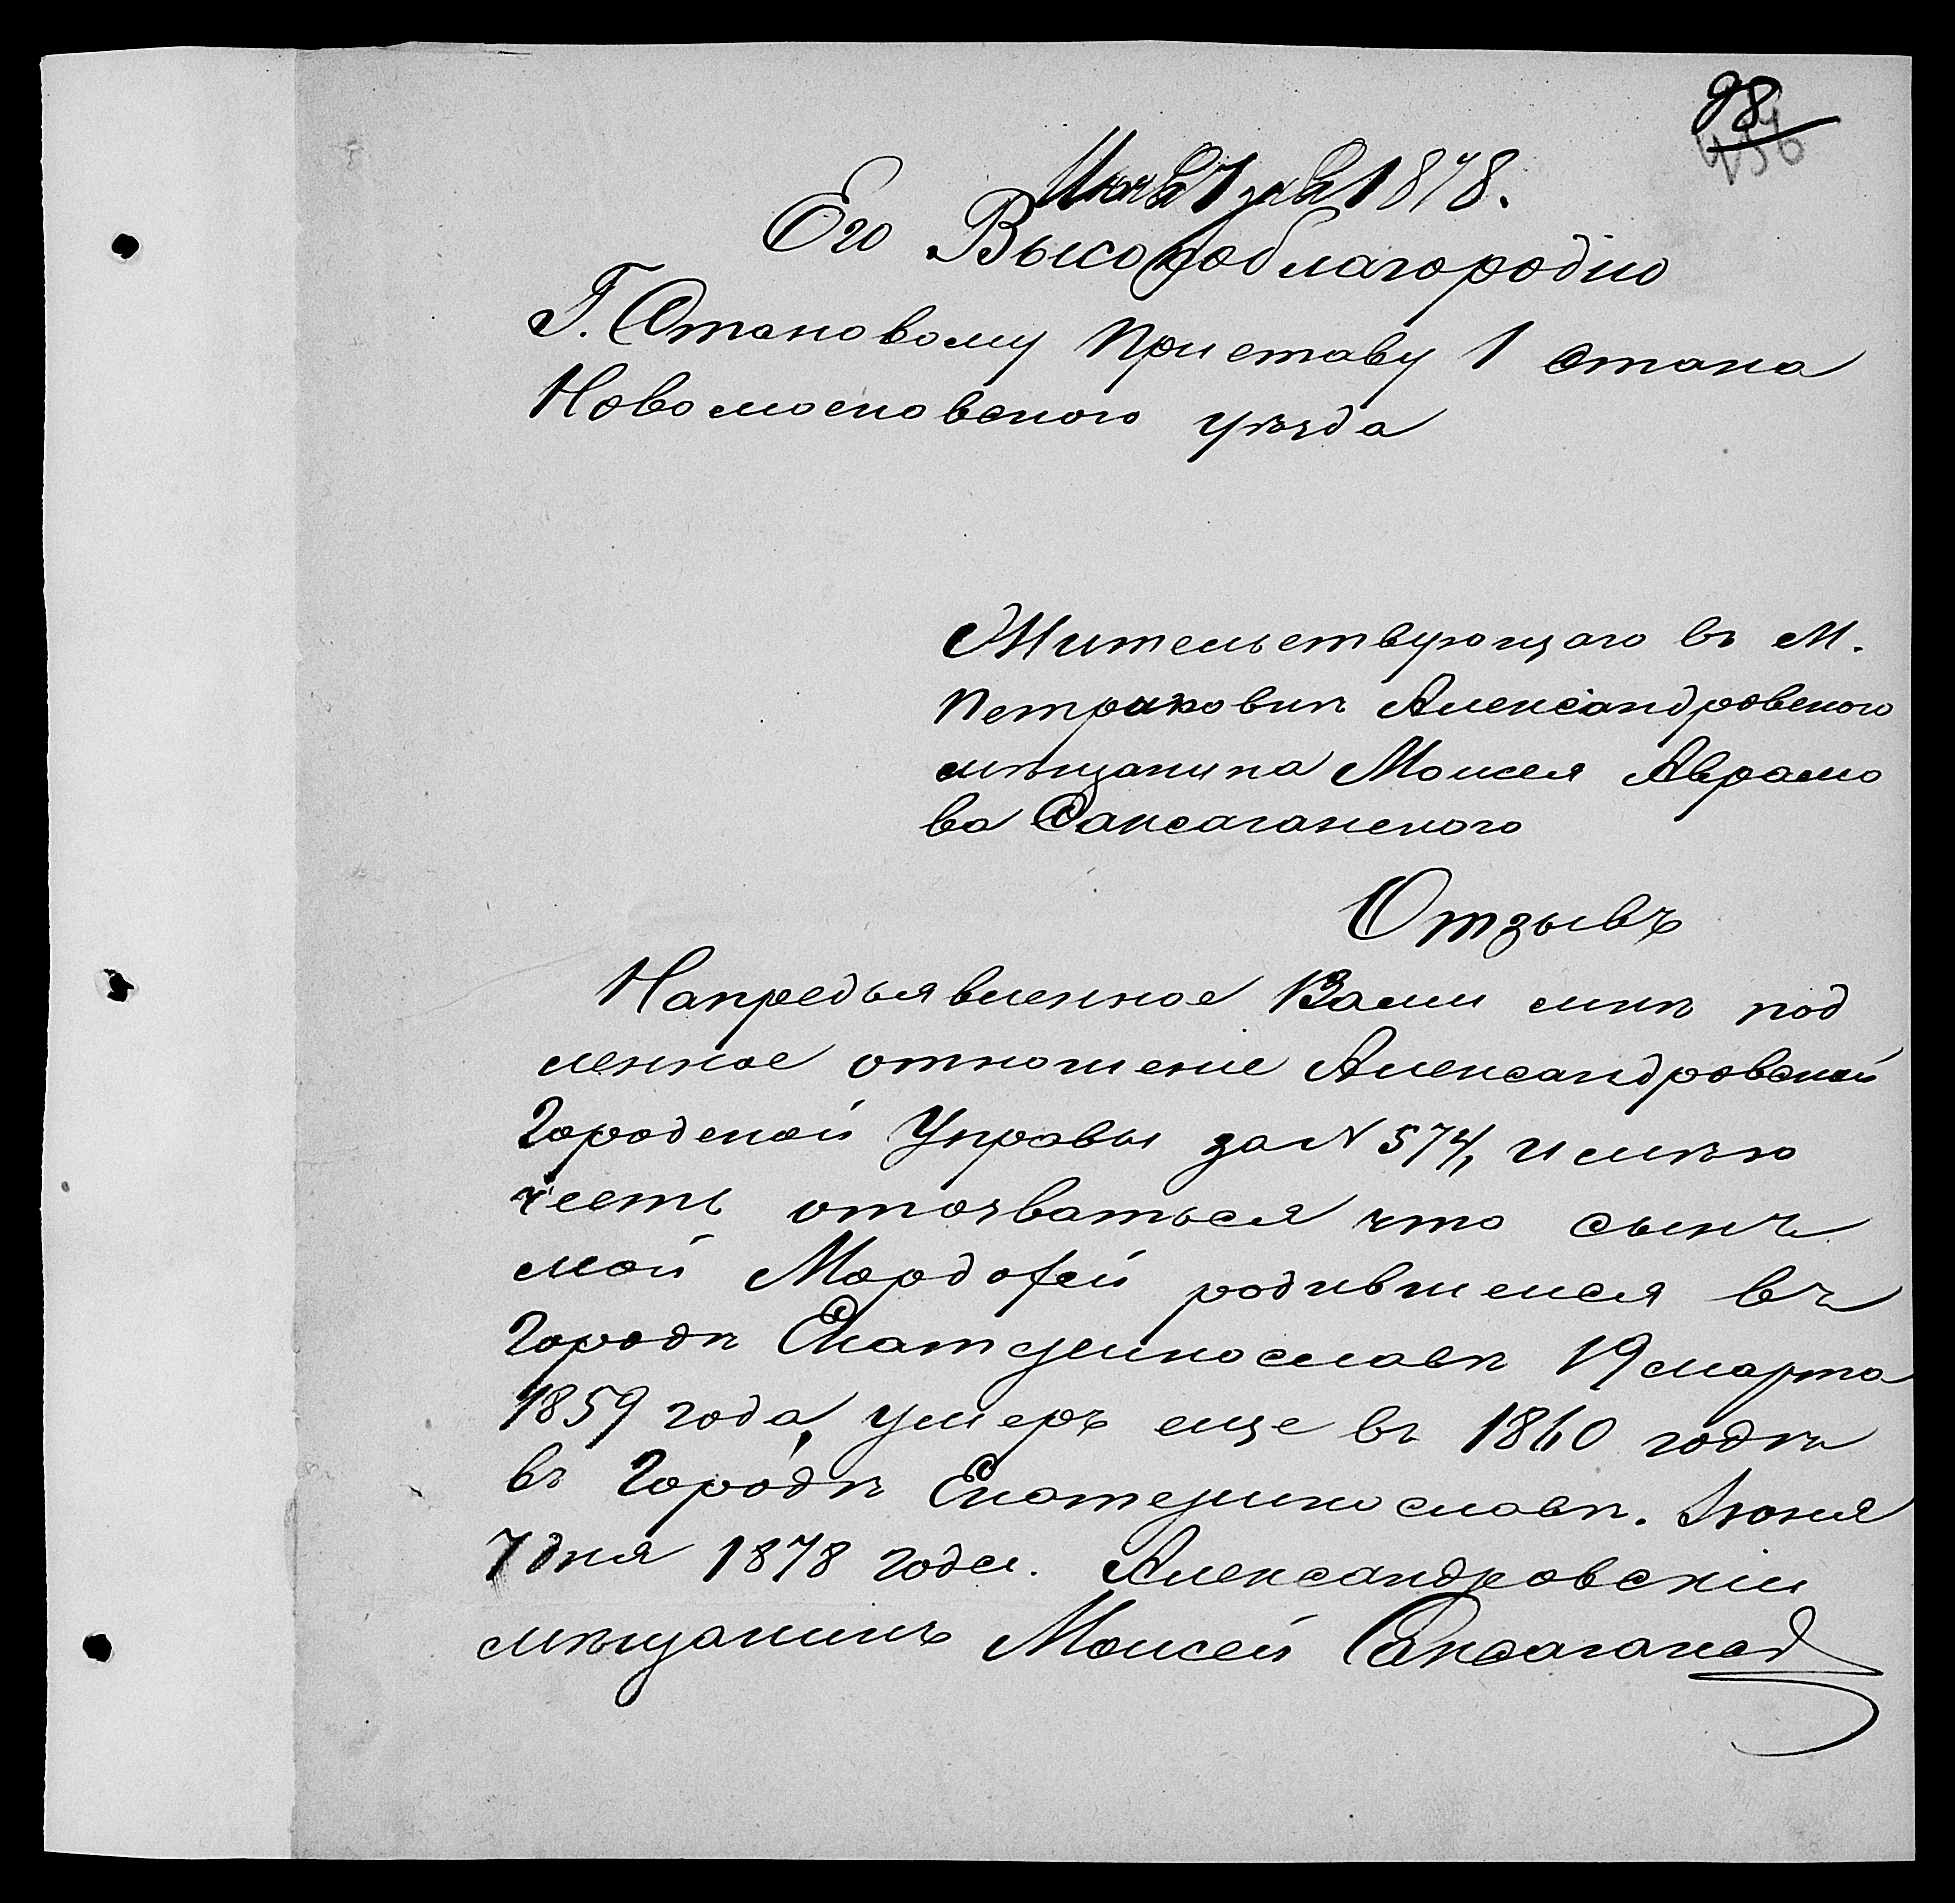 98
436
Июня 7 дня 1878.
Его Высокоблагородію
Г. Становому Приставу 1 Стана
Новомосковского уѣзда
Жительствующаго въ М.
Петриковкѣ Александровского
мѣщанина Моисея Аврамо
ва Саксаганского
Отзывъ
Напредъявленное Вами мнѣ под
ленное отношеніе Александровской
Городской Управы за N 574, имѣю
честь отозваться что сынъ
мой Мордофей родившейся въ
Городѣ Екатеринославѣ 19 марта
1859 года, умеръ еще въ 1860 годѣ
въ Городѣ Екатеринославѣ. Июня
7 дня 1878 года. Александровскій
мѣщанинъ Моисей Саксаганск